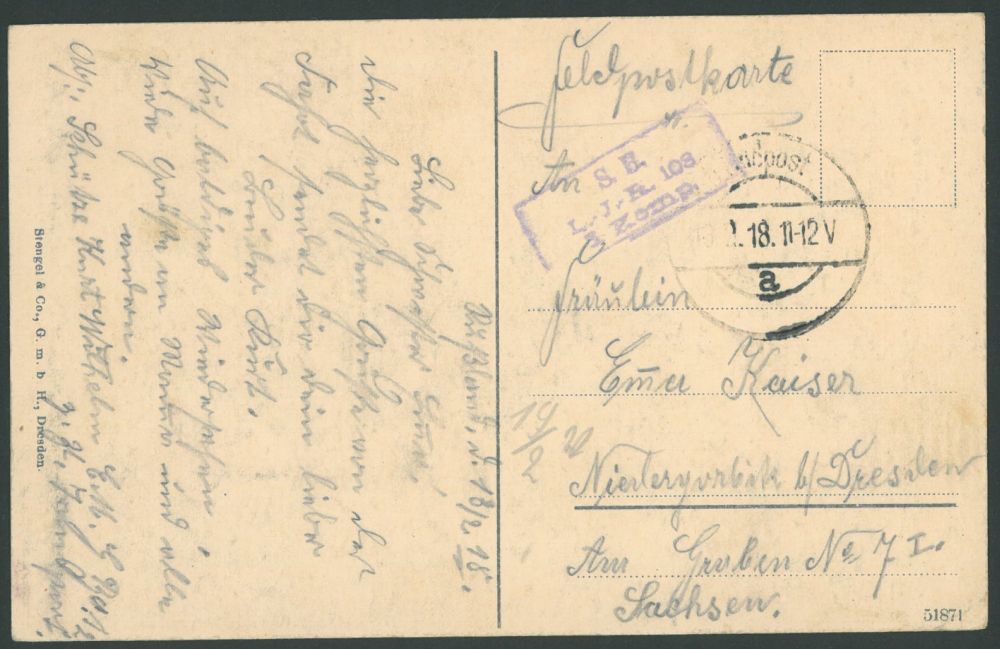 Feldpostkarte
An
Fräulein
Emma Kaiser
Niedergorbitz b/ Dresden
Am Graben No 7 I.
Sachsen.
S. B.
L.-J.-R. 103
Komp.
18.11-12 V
a
19/2
Rußland, d. 18/2. 18.
Liebe Schwester Emma!
Die herzlichsten Grüße von der
Fahrt sendet dir dein lieber
Bruder Kurt.
Auf baldiges Wiedersehen!
Viele Grüße an Mama und alle
andern.
Abs. Schütze Kurt Wilhelm
Stengel & Co., G. m. b H., Dresden.
51871